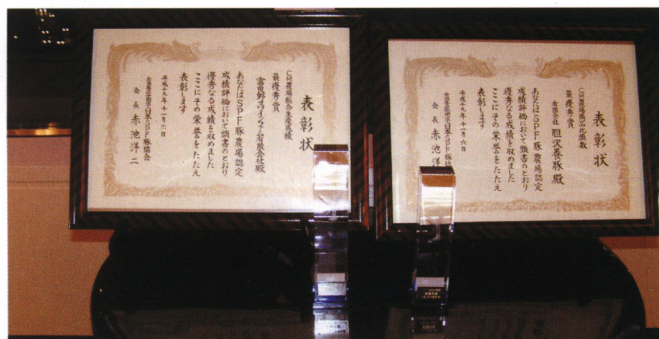 表彰状
CM農場総合生産成績
最優秀賞
あなたはSPF豚農場認定
成績評価において頭書のとおり
優秀なる成績を収めました
ここにその栄誉をたたえ
表彰します
平成十九年十一月六日
日本SPF豚協会
会長 赤池洋二
表彰状
最優秀賞
有限会社 胆沢養豚殿
あなたはSPF豚農場認定
成績評価において頭書のとおり
優秀なる成績を収めました
ここにその栄誉をたたえ
表彰します
平成十九年十一月六日
日本SPF豚
会長 赤池洋